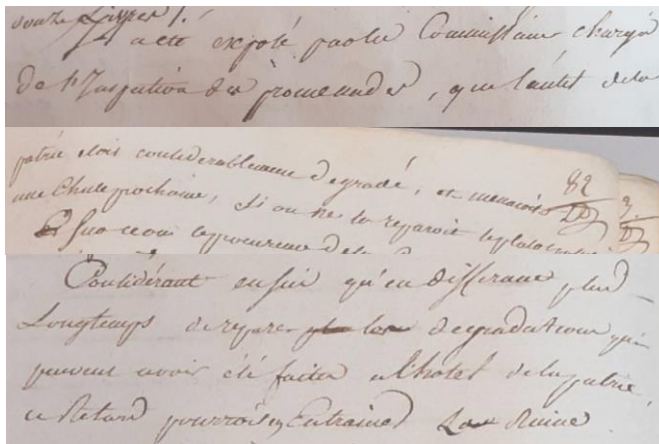 douze Livres /.
Il a été exposé par les Commissaires chargés
de l'Inspection des promenades, que l'autel de la
patrie étoit considerablement degradé, et menacoit
82
une Chute prochaine, si on ne le reparoit le plutot
Sur ce oui le procureur de la
Considérant enfin qu'en differant plus
Longtemps de reparer les degradations qui
peuvent avoir été faites a l'hotel de la patrie,
ce Retard pourroit en Entrainer La Ruine